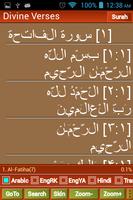 12:38 AM
Divine Verses
Surah
[١] سورة الفاتحة
[١:١] بسم اللـه
الرحمـن الرحيم
[١:٢] الحمد للـه
رب العالمين
[١:٣] الرحمـن
الرحيم
1. Al-Fatiha(7)
Arabic EngRK EngYA Hindi Tran
GoTo Search Skin Zoom- Zoom+